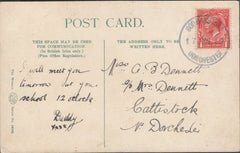 POST CARD.
THIS SPACE MAY BE USED
FOR COMMUNICATION
(In British Isles only)
(Post Office Regulation).
THE ADDRESS ONLY TO BE
WRITTEN HERE.
I will meet you
tomorrow
school 12 o'clock
Biddy
Miss A B Dennett
c/o Mrs Dennett
Cattistock
Nr Dorchester
DORCHESTER